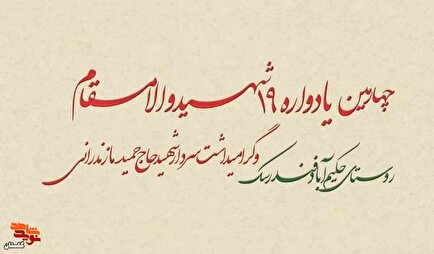 چهارمین یادواره ۱۹ شهید والامقام
و گرامیداشت سردار شهید حاج حمید مازندرانی
روستای حکیم‌آباد و فندرسک
نوید شاهد
گلستان